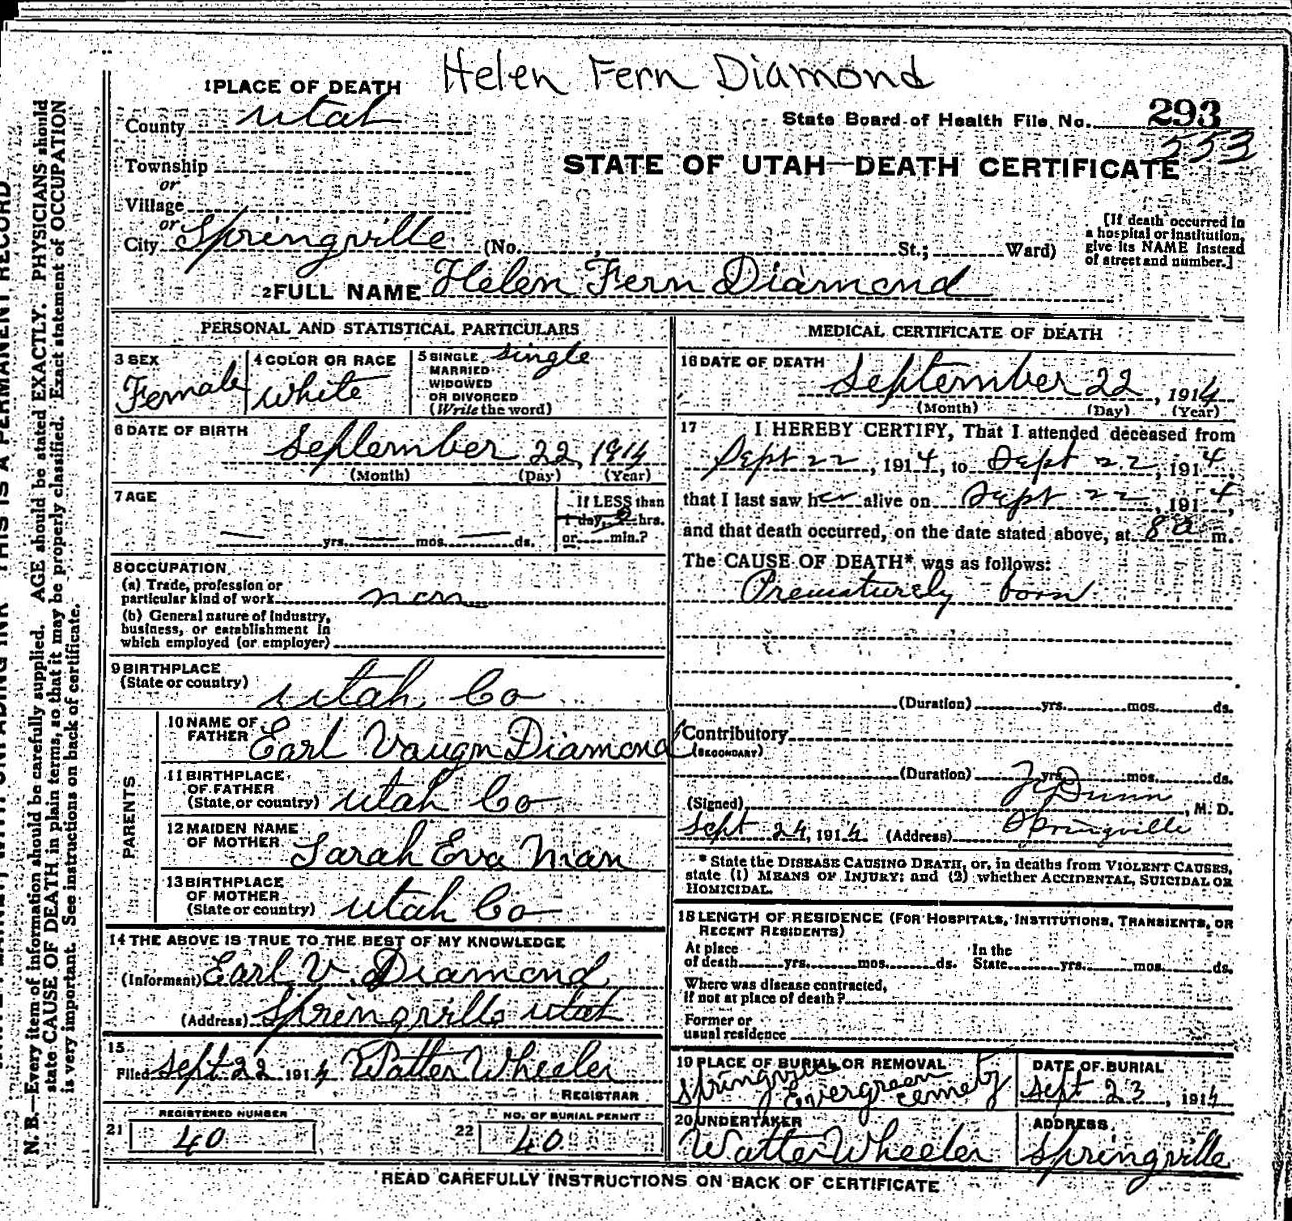 Helen Fern Diamond
1 PLACE OF DEATH
County Utah
State Board of Health File No. 293
333
Township
or
Village
or
City Springville (No. , St.; Ward)
STATE OF UTAH—DEATH CERTIFICATE
[If death occurred in
a hospital or institution,
give its NAME instead
of street and number.]
2 FULL NAME Helen Fern Diamond
PERSONAL AND STATISTICAL PARTICULARS
3 SEX
Female
4 COLOR OR RACE
White
5 SINGLE, Single
MARRIED
WIDOWED
OR DIVORCED
(Write the word)
6 DATE OF BIRTH
September 22, 1914
(Month) (Day) (Year)
7 AGE
yrs. mos. ds.
If LESS than
1 day, 2 hrs.
or min.?
8 OCCUPATION
(a) Trade, profession or
particular kind of work
(b) General nature of industry,
business, or establishment in
which employed (or employer)
9 BIRTHPLACE
(State or country) Utah Co
PARENTS
10 NAME OF
FATHER Earl Vaugn Diamond
11 BIRTHPLACE
OF FATHER
(State or country) Utah Co
12 MAIDEN NAME
OF MOTHER Sarah Eva Man
13 BIRTHPLACE
OF MOTHER
(State or country) Utah Co
14 THE ABOVE IS TRUE TO THE BEST OF MY KNOWLEDGE
(Informant) Earl V. Diamond
(Address) Springville Utah
15
Filed Sept 22 1914 Watter Wheeler
REGISTRAR
REGISTERED NUMBER
21 40
NO. OF BURIAL PERMIT
22 40
MEDICAL CERTIFICATE OF DEATH
16 DATE OF DEATH
September 22, 1914
(Month) (Day) (Year)
17 I HEREBY CERTIFY, That I attended deceased from
Sept 22, 1914, to Sept 22, 1914,
that I last saw her alive on Sept 22, 1914,
and that death occurred, on the date stated above, at 8 a m.
The CAUSE OF DEATH* was as follows:
Prematurely born
(Duration) yrs. mos. ds.
Contributory
(SECONDARY)
(Duration) yrs. mos. ds.
(Signed) Dunn, M. D.
Sept 24, 1914 (Address) Springville
* State the DISEASE CAUSING DEATH, or, in deaths from VIOLENT CAUSES,
state (1) MEANS OF INJURY; and (2) whether ACCIDENTAL, SUICIDAL OR
HOMICIDAL.
18 LENGTH OF RESIDENCE (FOR HOSPITALS, INSTITUTIONS, TRANSIENTS, OR
RECENT RESIDENTS)
At place
of death yrs. mos. ds.
In the
State yrs. mos. ds.
Where was disease contracted,
if not at place of death?
Former or
usual residence
19 PLACE OF BURIAL OR REMOVAL
Springville
Evergreen
cemety
DATE OF BURIAL
Sept 23, 1914
20 UNDERTAKER
Watter Wheeler
ADDRESS
Springville
READ CAREFULLY INSTRUCTIONS ON BACK OF CERTIFICATE
THIS IS A PERMANENT RECORD
N. B.—Every item of information should be carefully supplied. AGE should be stated EXACTLY. PHYSICIANS should
state CAUSE OF DEATH in plain terms, so that it may be properly classified. Exact statement of OCCUPATION
is very important. See instructions on back of certificate.